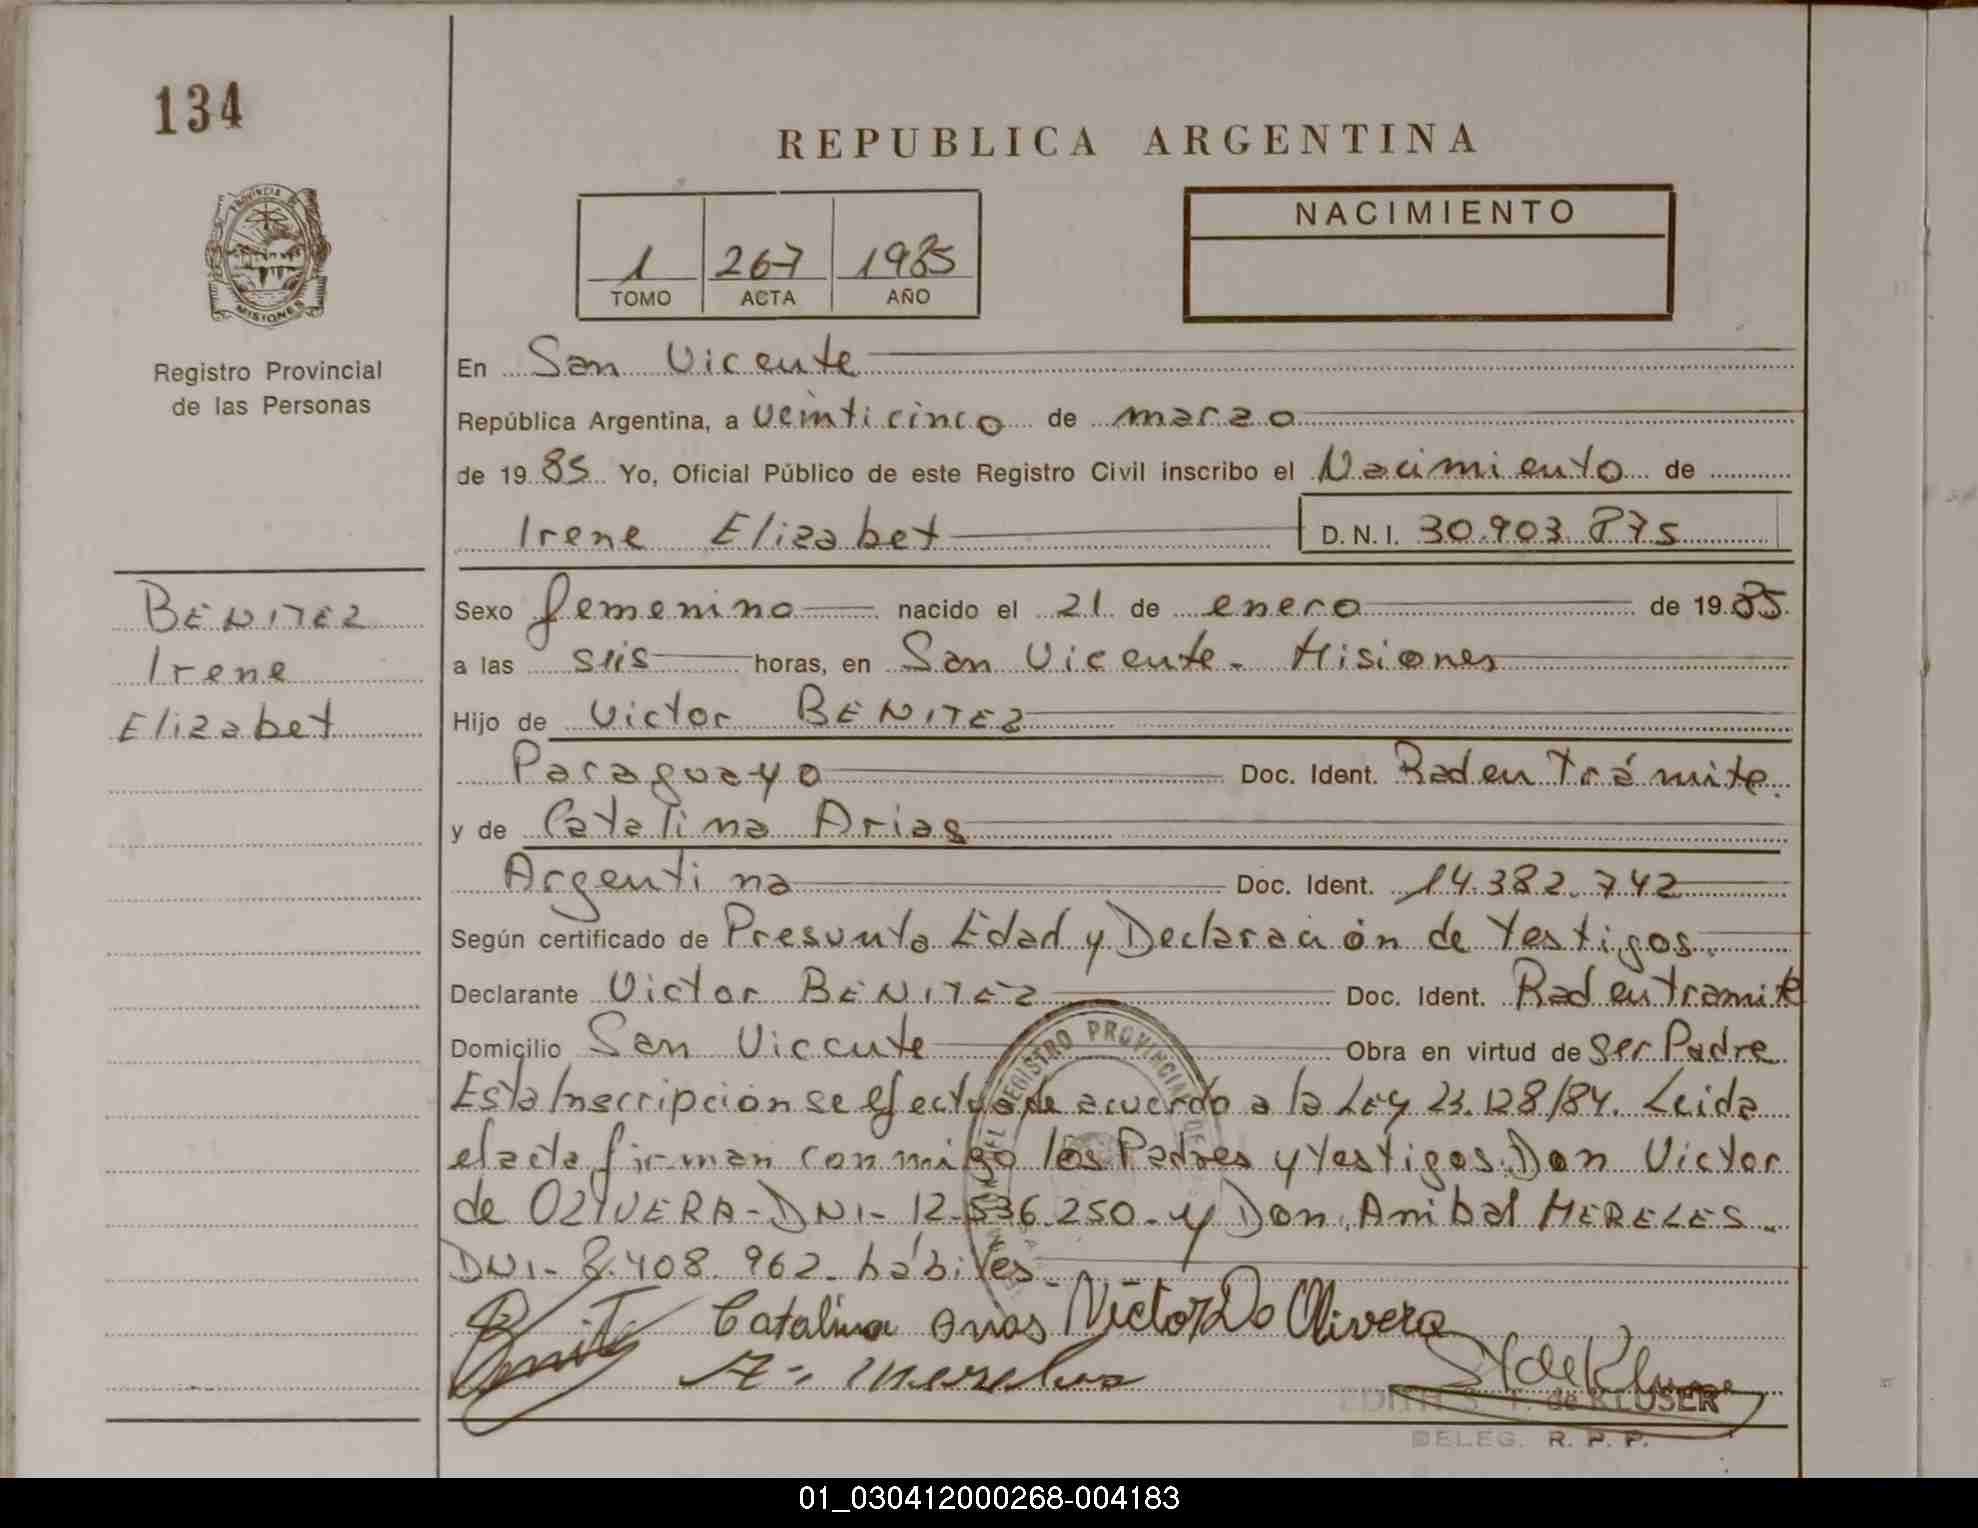 134
REPUBLICA ARGENTINA
PROVINCIA DE
MISIONES
Registro Provincial
de las Personas
1 267 1985
TOMO ACTA AÑO
NACIMIENTO
En San Vicente
República Argentina, a veinticinco de marzo
de 1985 Yo, Oficial Público de este Registro Civil inscribo el Nacimiento de
Irene Elizabet D.N.I. 30.903.875
BENITEZ
Irene
Elizabet
Sexo femenino nacido el 21 de enero de 1985
a las seis horas, en San Vicente - Misiones
Hijo de Victor BENITEZ
Paraguayo Doc. Ident. Rad en Trámite.
y de Catalina Arias
Argentina Doc. Ident. 14.382.742
Según certificado de Presunta Edad y Declaración de Testigos.
Declarante Victor BENITEZ Doc. Ident. Rad en tramite
Domicilio San Vicente Obra en virtud de ser Padre
Esta Inscripción se efectua de acuerdo a la Ley 23.128/84. Leida
el acta firman con migo los Padres y testigos Don Victor
de OLIVERA - DNI - 12.536.250 - y Don Anibal MERELES -
DNI - 8.408.962 - hábiles -
Catalina Arias Victor Do Olivera
A. Mereles
EDITH S. T. de KLUSER
DELEG. R. P. P.
REGISTRO PROVINCIAL DE
01_030412000268-004183